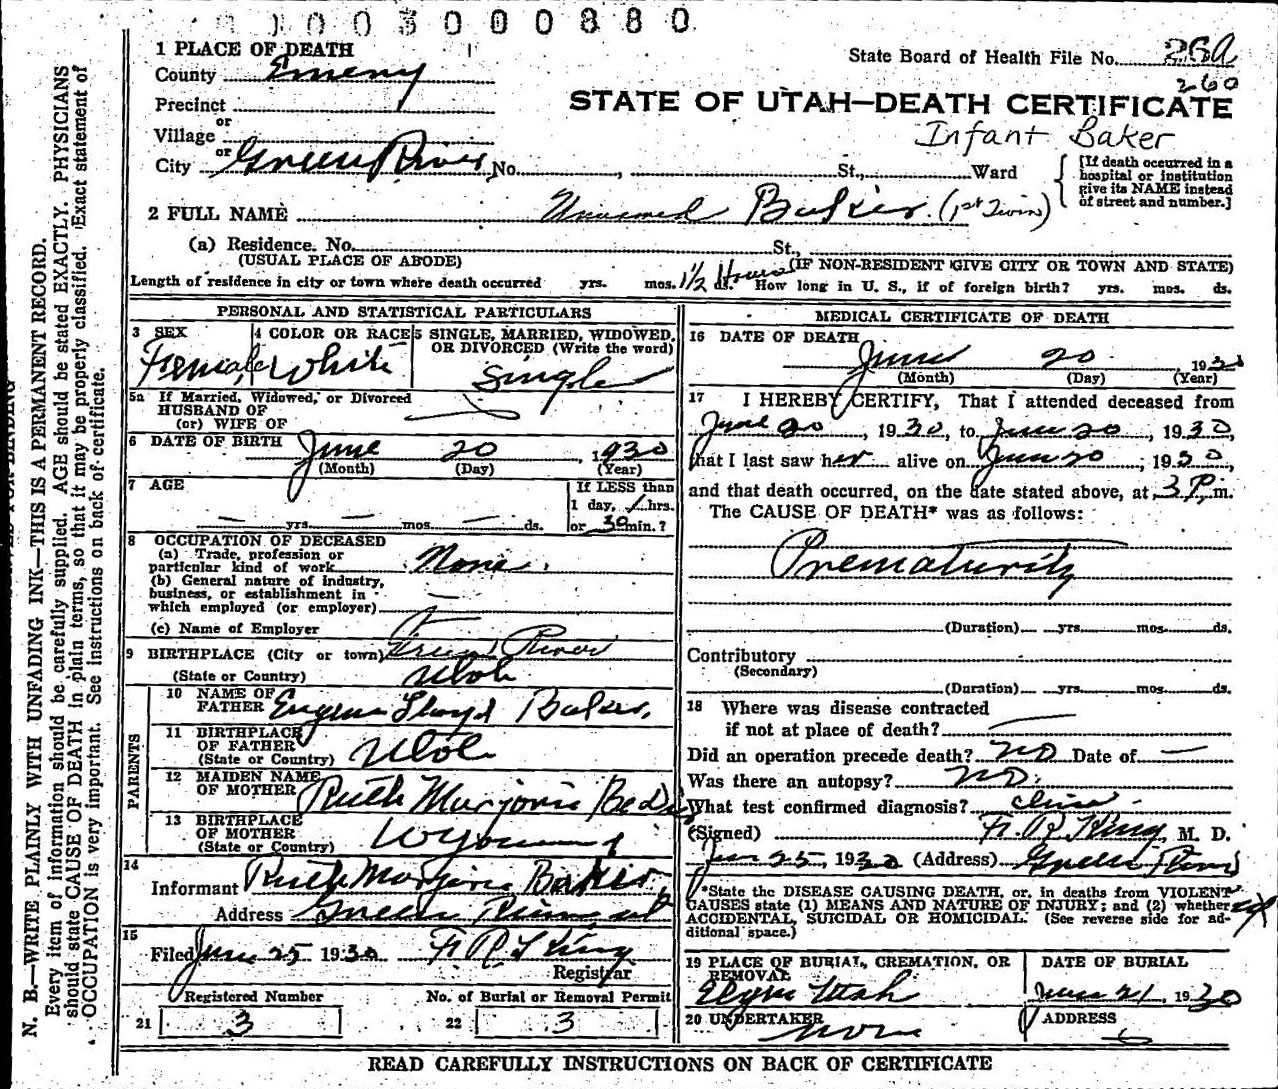 0 0 0 3 0 0 0 8 8 0
1 PLACE OF DEATH
State Board of Health File No. 
260
County Emery
STATE OF UTAH—DEATH CERTIFICATE
Precinct
Infant Baker
or
Village
or
City Green River No. , St., Ward
[If death occurred in a
hospital or institution
give its NAME instead
of street and number.]
2 FULL NAME Unnamed Baker (1st Twin)
(a) Residence. No. St.,
(USUAL PLACE OF ABODE) (IF NON-RESIDENT GIVE CITY OR TOWN AND STATE)
Length of residence in city or town where death occurred yrs. mos. 1½ Hours ds. How long in U. S., if of foreign birth? yrs. mos. ds.
PERSONAL AND STATISTICAL PARTICULARS
3 SEX
Female
4 COLOR OR RACE
White
5 SINGLE, MARRIED, WIDOWED,
OR DIVORCED (Write the word)
Single
5a If Married, Widowed, or Divorced
HUSBAND OF
(or) WIFE OF
6 DATE OF BIRTH June 20, 1930
(Month) (Day) (Year)
7 AGE
— yrs. — mos. — ds.
If LESS than
1 day, 1 hrs.
or 30 min.?
8 OCCUPATION OF DECEASED
(a) Trade, profession or
particular kind of work None.
(b) General nature of industry,
business, or establishment in
which employed (or employer) —
(c) Name of Employer
9 BIRTHPLACE (City or town) Green River
(State or Country) Utah
PARENTS
10 NAME OF
FATHER Eugene Lloyd Baker.
11 BIRTHPLACE
OF FATHER
(State or Country) Utah
12 MAIDEN NAME
OF MOTHER Ruth Marjorie
13 BIRTHPLACE
OF MOTHER
(State or Country) Wyoming
14
Informant Ruth Marjorie Baker
Address Green River Ut
15
Filed June 25 1930 F. R. King
Registrar
Registered Number
21 3
No. of Burial or Removal Permit
22 3
MEDICAL CERTIFICATE OF DEATH
16 DATE OF DEATH
June 20 1930
(Month) (Day) (Year)
17 I HEREBY CERTIFY, That I attended deceased from
June 20, 1930, to June 20, 1930,
that I last saw her alive on June 20, 1930,
and that death occurred, on the date stated above, at 3 P. m.
The CAUSE OF DEATH* was as follows:
Prematurity
(Duration) yrs. mos. ds.
Contributory
(Secondary)
(Duration) yrs. mos. ds.
18 Where was disease contracted
if not at place of death?
Did an operation precede death? No Date of —
Was there an autopsy? No.
What test confirmed diagnosis?
(Signed) F. R. King, M. D.
June 25, 1930 (Address) Green River
*State the DISEASE CAUSING DEATH, or, in deaths from VIOLENT
CAUSES state (1) MEANS AND NATURE OF INJURY; and (2) whether
ACCIDENTAL, SUICIDAL OR HOMICIDAL. (See reverse side for ad-
ditional space.)
19 PLACE OF BURIAL, CREMATION, OR
REMOVAL
Elgin Utah
DATE OF BURIAL
June 21, 1930
20 UNDERTAKER
None
ADDRESS
READ CAREFULLY INSTRUCTIONS ON BACK OF CERTIFICATE
N. B.—WRITE PLAINLY WITH UNFADING INK—THIS IS A PERMANENT RECORD.
Every item of information should be carefully supplied. AGE should be stated EXACTLY. PHYSICIANS
should state CAUSE OF DEATH in plain terms, so that it may be properly classified. Exact statement of
OCCUPATION is very important. See instructions on back of certificate.